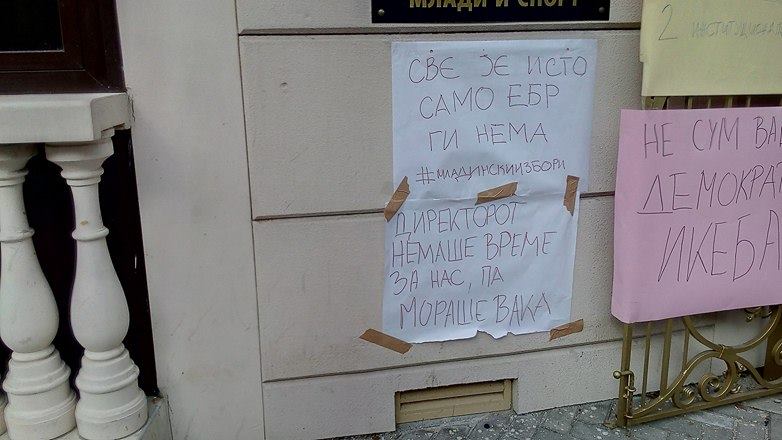 МЛАДИ И СПОРТ
СВЕ ЈЕ ИСТО
САМО ЕБР
ГИ НЕМА
#МЛАДИНСКИИЗБОРИ
ДИРЕКТОРОТ
НЕМАШЕ ВРЕМЕ
ЗА НАС, ПА
МОРАШЕ ВАКА
2
НЕ СУМ ВА
ДЕМОКРАТ
ИКЕБА